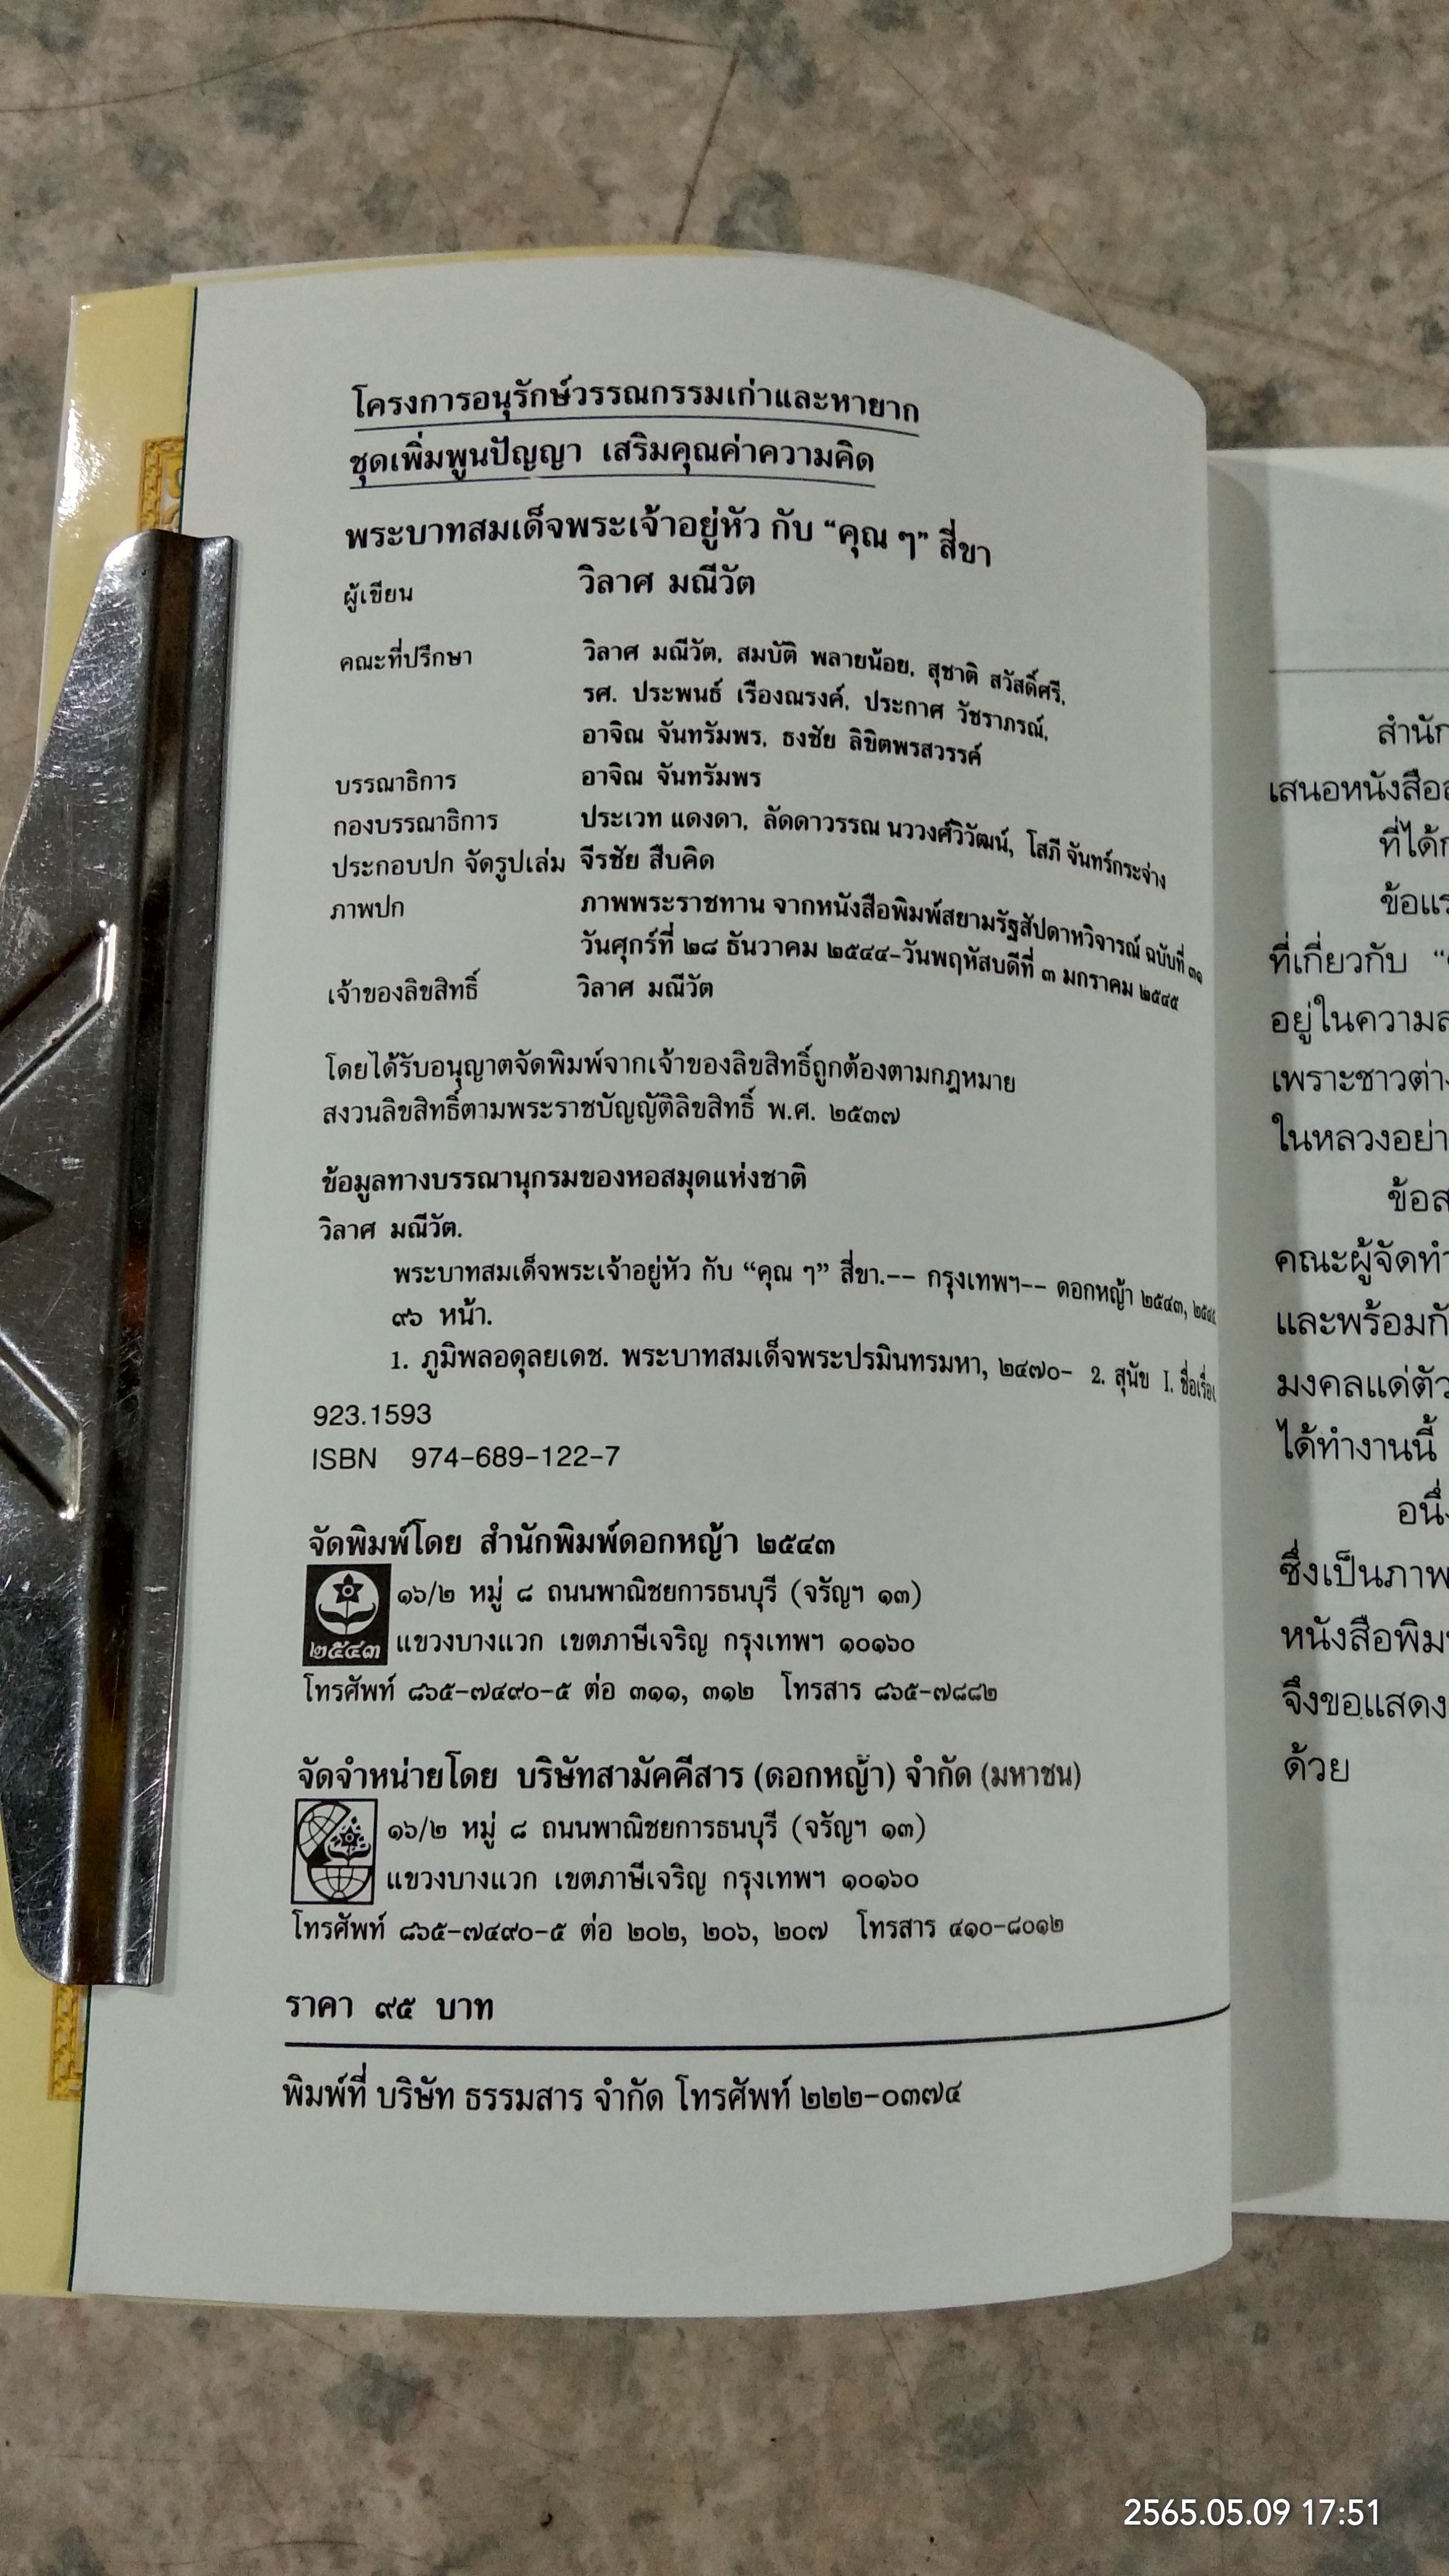 โครงการอนุรักษ์วรรณกรรมเก่าและหายาก
ชุดเพิ่มพูนปัญญา เสริมคุณค่าความคิด
พระบาทสมเด็จพระเจ้าอยู่หัว กับ “คุณ ๆ” สี่ขา
ผู้เขียน วิลาศ มณีวัต
คณะที่ปรึกษา วิลาศ มณีวัต, สมบัติ พลายน้อย, สุชาติ สวัสดิ์ศรี,
รศ. ประพนธ์ เรืองณรงค์, ประกาศ วัชราภรณ์,
อาจิณ จันทรัมพร, ธงชัย ลิขิตพรสวรรค์
บรรณาธิการ อาจิณ จันทรัมพร
กองบรรณาธิการ ประเวท แดงดา, ลัดดาวรรณ นววงศ์วิวัฒน์, โสภี จันทร์กระจ่าง
ประกอบปก จัดรูปเล่ม จีรชัย สืบคิด
ภาพปก ภาพพระราชทาน จากหนังสือพิมพ์สยามรัฐสัปดาหวิจารณ์ ฉบับที่ ๓๑
วันศุกร์ที่ ๒๘ ธันวาคม ๒๕๔๔-วันพฤหัสบดีที่ ๓ มกราคม ๒๕๔๕
เจ้าของลิขสิทธิ์ วิลาศ มณีวัต
โดยได้รับอนุญาตจัดพิมพ์จากเจ้าของลิขสิทธิ์ถูกต้องตามกฎหมาย
สงวนลิขสิทธิ์ตามพระราชบัญญัติลิขสิทธิ์ พ.ศ. ๒๕๓๗
ข้อมูลทางบรรณานุกรมของหอสมุดแห่งชาติ
วิลาศ มณีวัต.
พระบาทสมเด็จพระเจ้าอยู่หัว กับ “คุณ ๆ” สี่ขา.-- กรุงเทพฯ-- ดอกหญ้า ๒๕๔๓,
๙๖ หน้า.
1. ภูมิพลอดุลยเดช. พระบาทสมเด็จพระปรมินทรมหา, ๒๔๗๐- 2. สุนัข I. ชื่อเรื่อง
923.1593
ISBN 974-689-122-7
จัดพิมพ์โดย สำนักพิมพ์ดอกหญ้า ๒๕๔๓
๑๖/๒ หมู่ ๘ ถนนพาณิชยการธนบุรี (จรัญฯ ๑๓)
๒๕๔๓ แขวงบางแวก เขตภาษีเจริญ กรุงเทพฯ ๑๐๑๖๐
โทรศัพท์ ๘๖๕-๗๔๙๐-๕ ต่อ ๓๑๑, ๓๑๒ โทรสาร ๘๖๕-๗๘๘๒
จัดจำหน่ายโดย บริษัทสามัคคีสาร (ดอกหญ้า) จำกัด (มหาชน)
๑๖/๒ หมู่ ๘ ถนนพาณิชยการธนบุรี (จรัญฯ ๑๓)
แขวงบางแวก เขตภาษีเจริญ กรุงเทพฯ ๑๐๑๖๐
โทรศัพท์ ๘๖๕-๗๔๙๐-๕ ต่อ ๒๐๒, ๒๐๖, ๒๐๗ โทรสาร ๔๑๐-๘๐๑๒
ราคา ๙๕ บาท
พิมพ์ที่ บริษัท ธรรมสาร จำกัด โทรศัพท์ ๒๒๒-๐๓๗๔
สำนัก
เสนอหนังสือ
ที่ได้
ข้อแร
ที่เกี่ยวกับ
อยู่ในความ
เพราะชาวต่าง
ในหลวงอย่า
ข้อส
คณะผู้จัดทำ
และพร้อมกั
มงคลแด่ตัว
ได้ทำงานนี้
อนึ่ง
ซึ่งเป็นภาพ
หนังสือพิม
จึงขอแสดง
ด้วย
2565.05.09 17:51